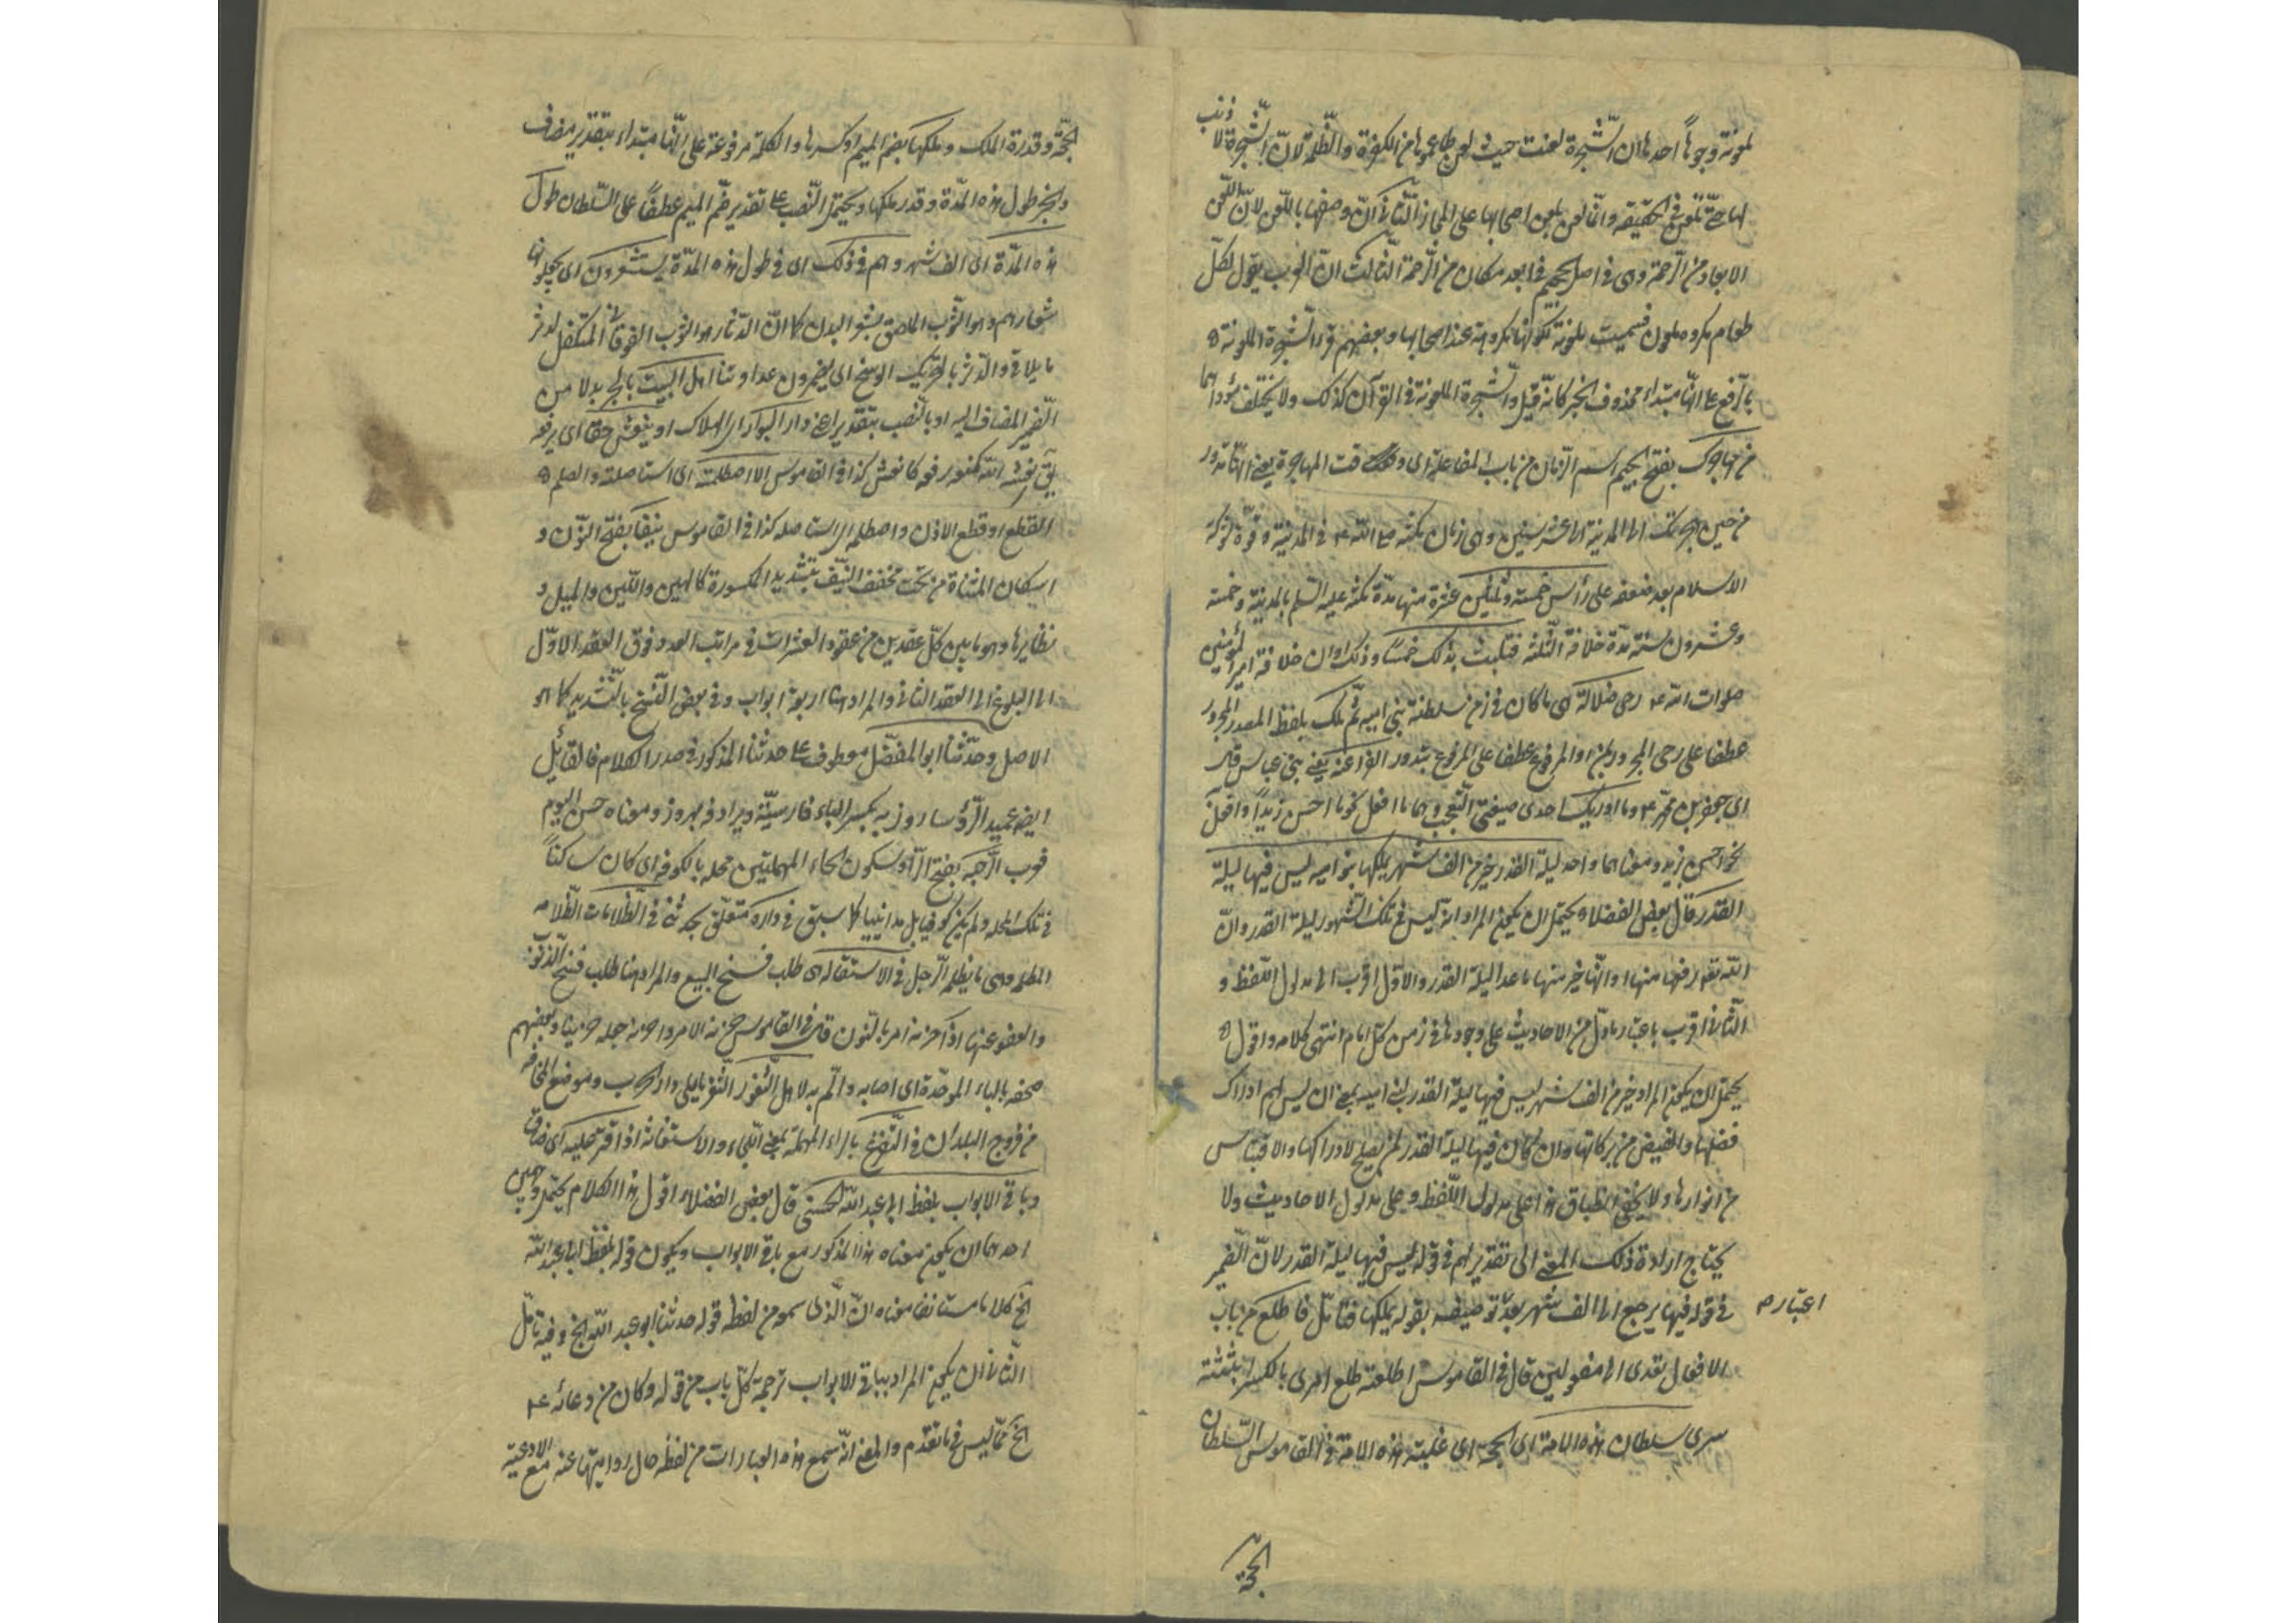 لمونة وجوهاً احدها ان الشجرة لعنت حيث لعن طاعموها من الكفرة والظلمة لان الشجرة لا ذنب
لها حتى تلعن فى الحقيقة وانما لعن بلعن اصحابها على المجاز الثانى ان وصفها باللعن لان اللعن
الابعاد من الرحمة وهى فى اصل الجحيم فى ابعد مكان من الرحمة الثالث ان العرب يقول لكل
طعام مكروه ملعون فسميت ملعونة لكونها مكروهة عند اصحابها وبعضهم قرء الشجرة الملعونة
بالرفع ع انها مبتداء محذوف الخبر كانه قيل والشجرة الملعونة فى القرآن كذلك ولا يختلف مؤداهما
من مهاجرك بفتح الجيم اسم الزمان من باب المفاعلة اى وقت المهاجرة يعنى انها تدور
من حين هجرتك الى المدينة الى عشر سنين وهى زمان مكثه ص الله ع فى المدينة وقوة شوكة
الاسلام بعد ضعفه على رأس خمسة وثلثين عشرة منها مدة مكثه عليه السلم بالمدينة وخمسة
وعشرون سنة مدة خلافة الثلثة فتلبث بذلك خمساً وذلك اوان خلافة امير المؤمنين
صلوات الله ع رحى ضلالة هى ما كان فى زمن سلطنة بنى امية ثم ملك بلفظ المصدر المجرور
عطفا على رحى المجرور بمن او المرفوع عطفا على المرفوع بتدور الفراعنة يعنى بنى عباس قال
اى جعفر بن محمد ع وما ادريك احدى صيغتى التعجب وهما ما افعل نحو ما احسن زيداً وافعل
نحو احسن زيد ومعناهما واحد ليلة القدر خير من الف شهر يملكها بنو امية ليس فيها ليلة
القدر قال بعض الفضلاء يحتمل ان يكون المراد انه ليس فى تلك الشهور ليلة القدر وان
الله تعه رفعها منها او انها خير منها ما عدا ليلة القدر والاول اقرب الى مدلول اللفظ و
الثانى اقرب باعتبار ما دل من الاحاديث على وجودها فى زمن كل امام انتهى كلامه واقول
يحتمل ان يكون المراد خير من الف شهر ليس فيها ليلة القدر لبنى امية بمعنى ان ليس لهم ادراك
فضلها والفيض من بركاتها وان كان فيها ليلة القدر لمن يصلح لادراكها والاقتباس
من انوارها ولا يخفى انطباق هذا على مدلول اللفظ وعلى مدلول الاحاديث ولا
يحتاج ارادة ذلك المعنى الى تقدير لهم فى قوله ليس فيها ليلة القدر لان الضمير
فى قوله فيها يرجع الى الف شهر بعد توصيفه بقوله يملكها فتامل فاطلع من باب
اعتبار م
الافعال تعدى الى مفعولين قال فى القاموس اطلعته طلع امرى بالكسر ابثثته
سرى سلطان هذه الامة اى الحجة اى غلبة هذه الامة فى القاموس السلطان
الحجة
الحجة وقدرة الملك وملكها بضم الميم او كسرها والكلمة مرفوعة على انها مبتداء بتقدير مضاف
والخبر طول هذه المدة وقدر ملكها ويحتمل النصب ع تقدير ضم الميم عطفاً على السلطان طول
هذه المدة اى الف شهر وهم فى ذلك اى فى طول هذه المدة يستشعرون اى يجعلونها
شعارهم وهو الثوب الملاصق بشعر البدن كما ان الدثار هو الثوب الفوقانى المتكفل لدثر
ما يلاقى والدثر بالتحريك الوسخ اى يضمرون عداوتنا اهل البيت بالجر بدلا من
الضمير المضاف اليه او بالنصب بتقدير اعنى دار البوار اى الهلاك او ينعش حقا اى يرفعه
يق نعشه الله كمنعه رفعه كانعش كذا فى القاموس الا اصطلمته اى استاصلته والصلم
القطع او قطع الاذن واصطلمه استاصله كذا فى القاموس نيفا بفتح النون و
اسكان المثناة من تحت مخفف النيف بتشديد المكسورة كالهين واللين والميل و
نظايرها وهو ما بين كل عقدين من عقود العشرات فى مراتب العدد فوق العقد الاول
الى البلوغ الى العقد الثانى والمراد هنا اربعة ابواب وفى بعض النسخ بالتشديد كما هو
الاصل وحدثنا ابو المفضل معطوف ع حدثنا المذكور فى صدر الكلام فالقائل
ايضه عميد الرؤسا روزبه بكسر الباء فارسية ويرادفه بهروز ومعناه حسن اليوم
قرب الرحبه بفتح الراء وسكون الحاء المهملتين محله بالكوفه اى كان ساكناً
فى تلك المحله ولم يكن كوفيا بل مداينيا كما سبق فى داره متعلق بحدثنى فى الظلامات الظلامه
المظلمه وهى ما يظلمه الرجل فى الاستقاله اى طلب فسخ البيع والمراد هنا طلب فسخ الذنوب
والعفو عنها اذا حزنه امر بالنون قال فى القاموس حزنه الامر واحزنه جعله حزينا وبعضهم
صحفه بالباء الموحدة اى اصابه والم به لاهل الثغور الثغر ما يلى دار الحرب وموضع المخافه
من فروج البلدان فى التفزع بالزاء المهملة بمعنى اللجاء والاستغاثة اذا قتر عليه اى ضاق
وباقى الابواب بلفظ ابى عبد الله الحسنى قال بعض الفضلاء اقول هذا الكلام يحتمل وجهين
احدهما ان يكون معناه هذا المذكور مع باقى الابواب ويكون قوله بلفظ ابى عبد الله
الخ كلاما مستانفا معناه ان الذى سمع من لفظه قوله حدثنا ابو عبد الله الخ وفيه تامل
الثانى ان يكون المراد بباقى الابواب ترجمة كل باب من قوله وكان من دعائه ع
الخ مما ليس فيما تقدم والمعنى انه سمع هذه العبارات من لفظه حال روايتها عنه مع الادعية